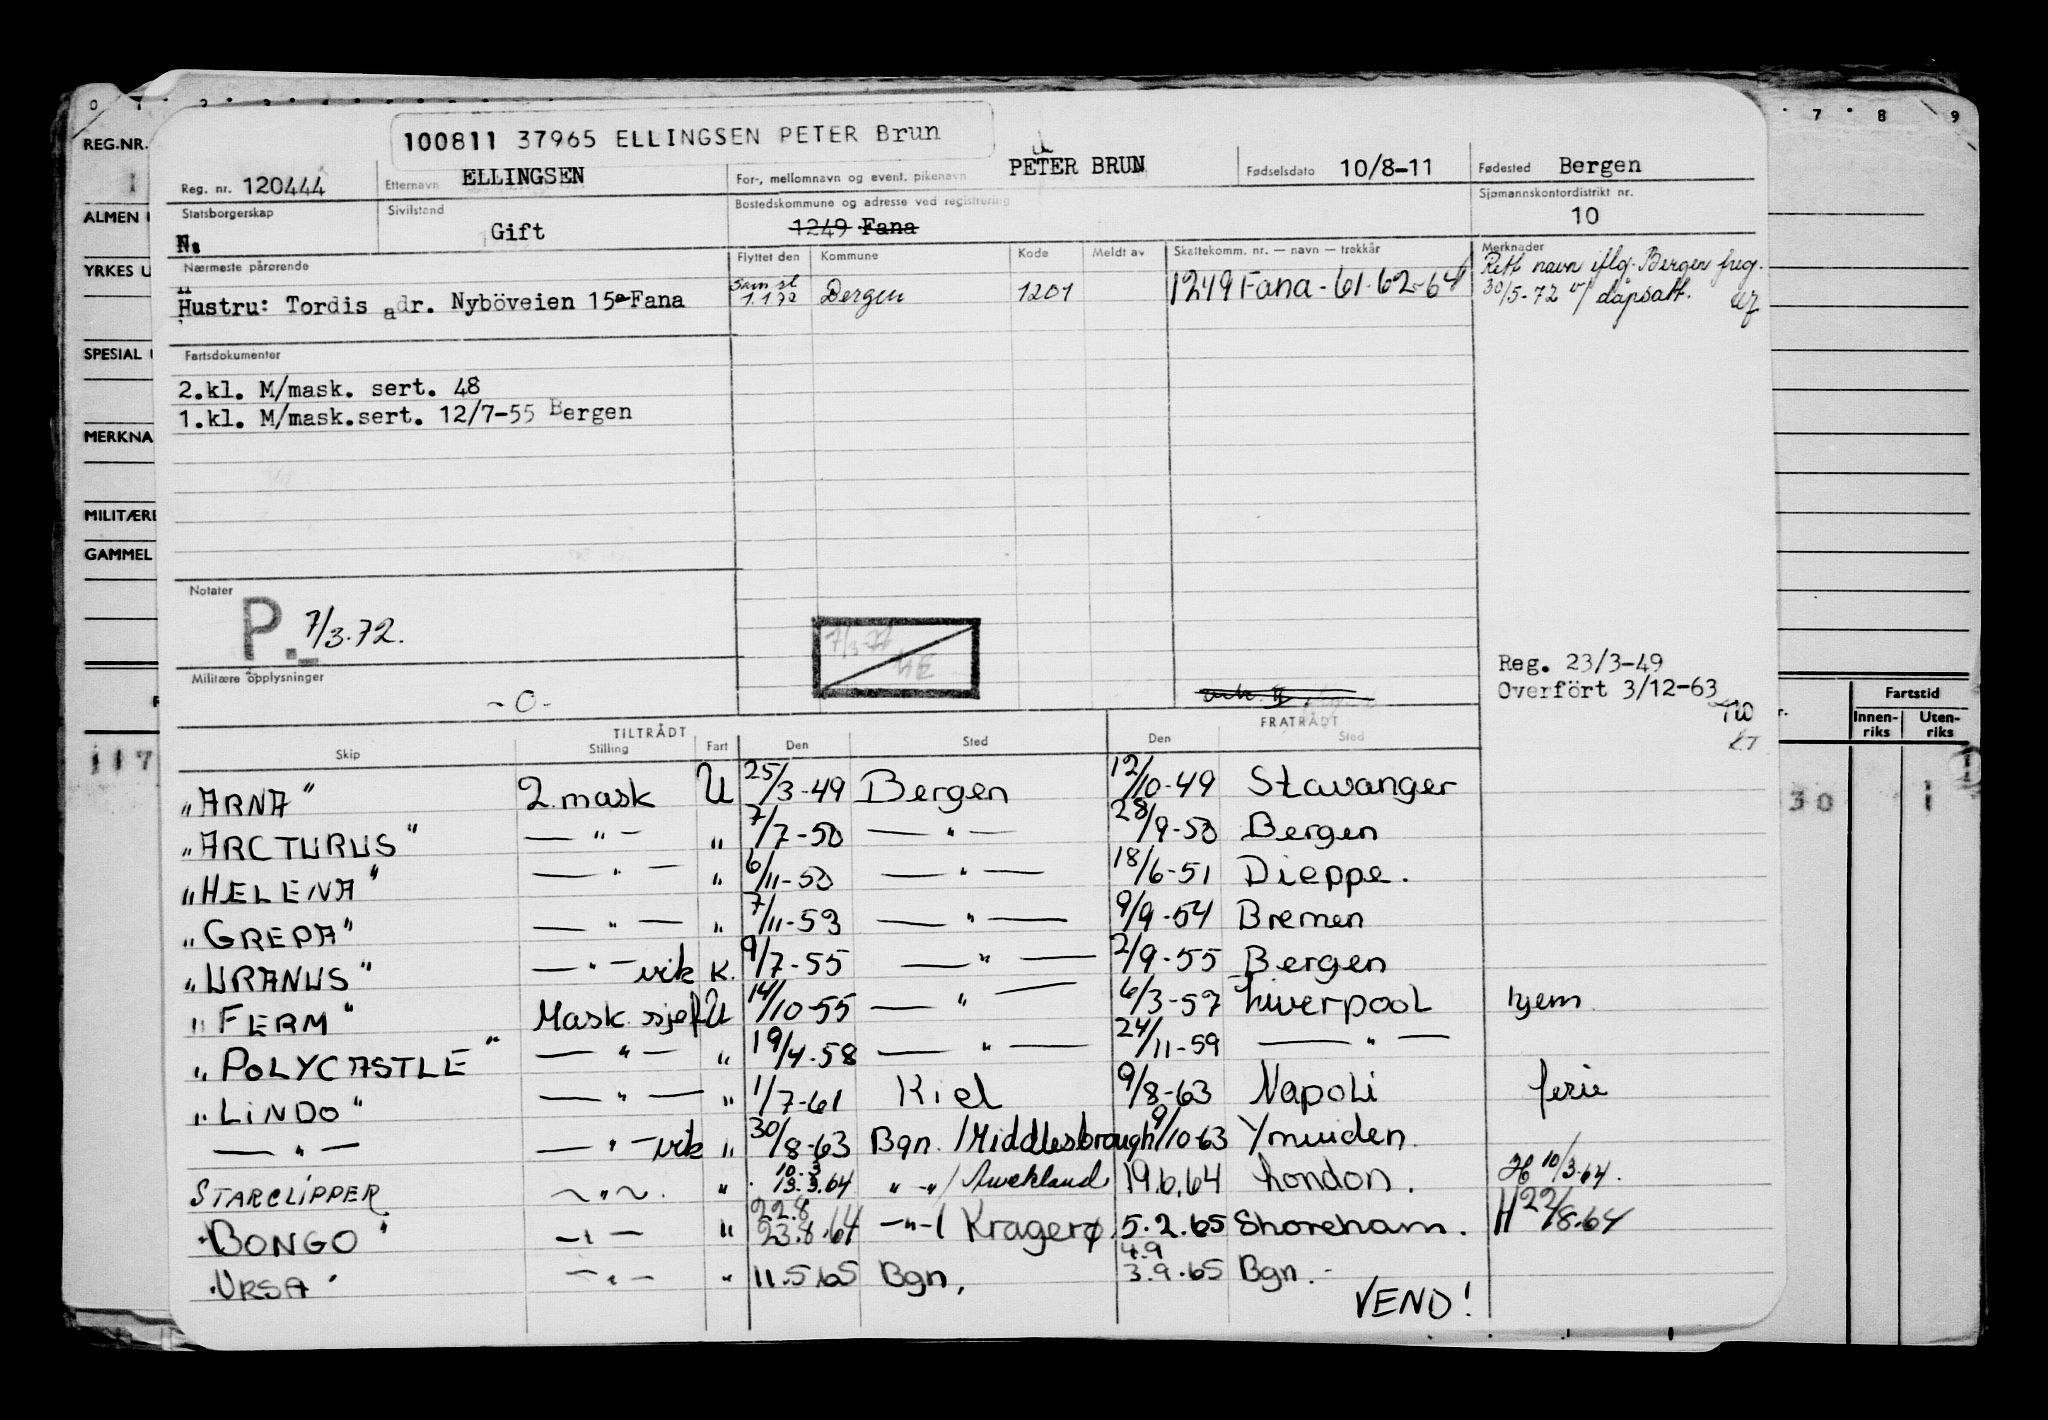 0 1 2 3 7 8 9
100811 37965 ELLINGSEN PETER Brun
REG.NR.
Reg. nr. 120444 Etternavn ELLINGSEN For-, mellomnavn og event. pikenavn PETER BRUN Fødselsdato 10/8-11 Fødested Bergen
ALMEN
Statsborgerskap N. Sivilstand Gift Bostedskommune og adresse ved registrering 1249 Fana Sjømannskontordistrikt nr. 10
YRKES U
Nærmeste pårørende Flyttet den Kommune Kode Meldt av Skattekomm. nr. — navn — trekkår Merknader
Hustru: Tordis adr. Nyböveien 15a Fana 1.1.72 Bergen 1201 1249 Fana - 61-62-64 Rett navn iflg. Bergen freg.
30/5-72 v/ dåpsatt.
SPESIAL U
Fartsdokumenter
2.kl. M/mask. sert. 48
1.kl. M/mask.sert. 12/7-55 Bergen
MERKNA
MILITÆRE
GAMMEL
Notater
P. 7/3.72.
7/3-72
Militære opplysninger
-0-
Reg. 23/3-49
Overfört 3/12-63
TILTRÅDT FRATRÅDT Fartstid
Skip Stilling Fart Den Sted Den Sted Innenriks Utenriks
117 30 1
"ARNA" 2.mask U 25/3-49 Bergen 12/10-49 Stavanger
"ARCTURUS" — " — " 7/7-50 — " — 28/9-50 Bergen
"HELENA" — " — " 6/11-50 — " — 18/6-51 Dieppe.
"GREPA" — " — " 7/11-53 — " — 9/9-54 Bremen
"URANUS" — " — vik K. 9/7-55 — " — 2/9-55 Bergen
"FERM" Mask. sjef U 14/10-55 — " — 6/3-57 Liverpool hjem
"POLYCASTLE" — " — " 19/4-58 — " — 24/11-59 — " —
"LINDO" — " — " 1/7-61 Kiel 9/8-63 Napoli ferie
— " — — " — vik " 30/8-63 Bgn. /Middlesbrough 9/10-63 Ymuiden
STARCLIPPER — " — " 10.3 13.3.64 " — " / Auckland 19.6.64 London. H 10/3-64.
"BONGO" — " — " 22.8 23.8.64 — " — / Kragerø 5.2.65 Shoreham. H 22/8-64
"URSA" — " — " 11.5.65 Bgn. 4.9 3.9.65 Bgn. -
VEND!